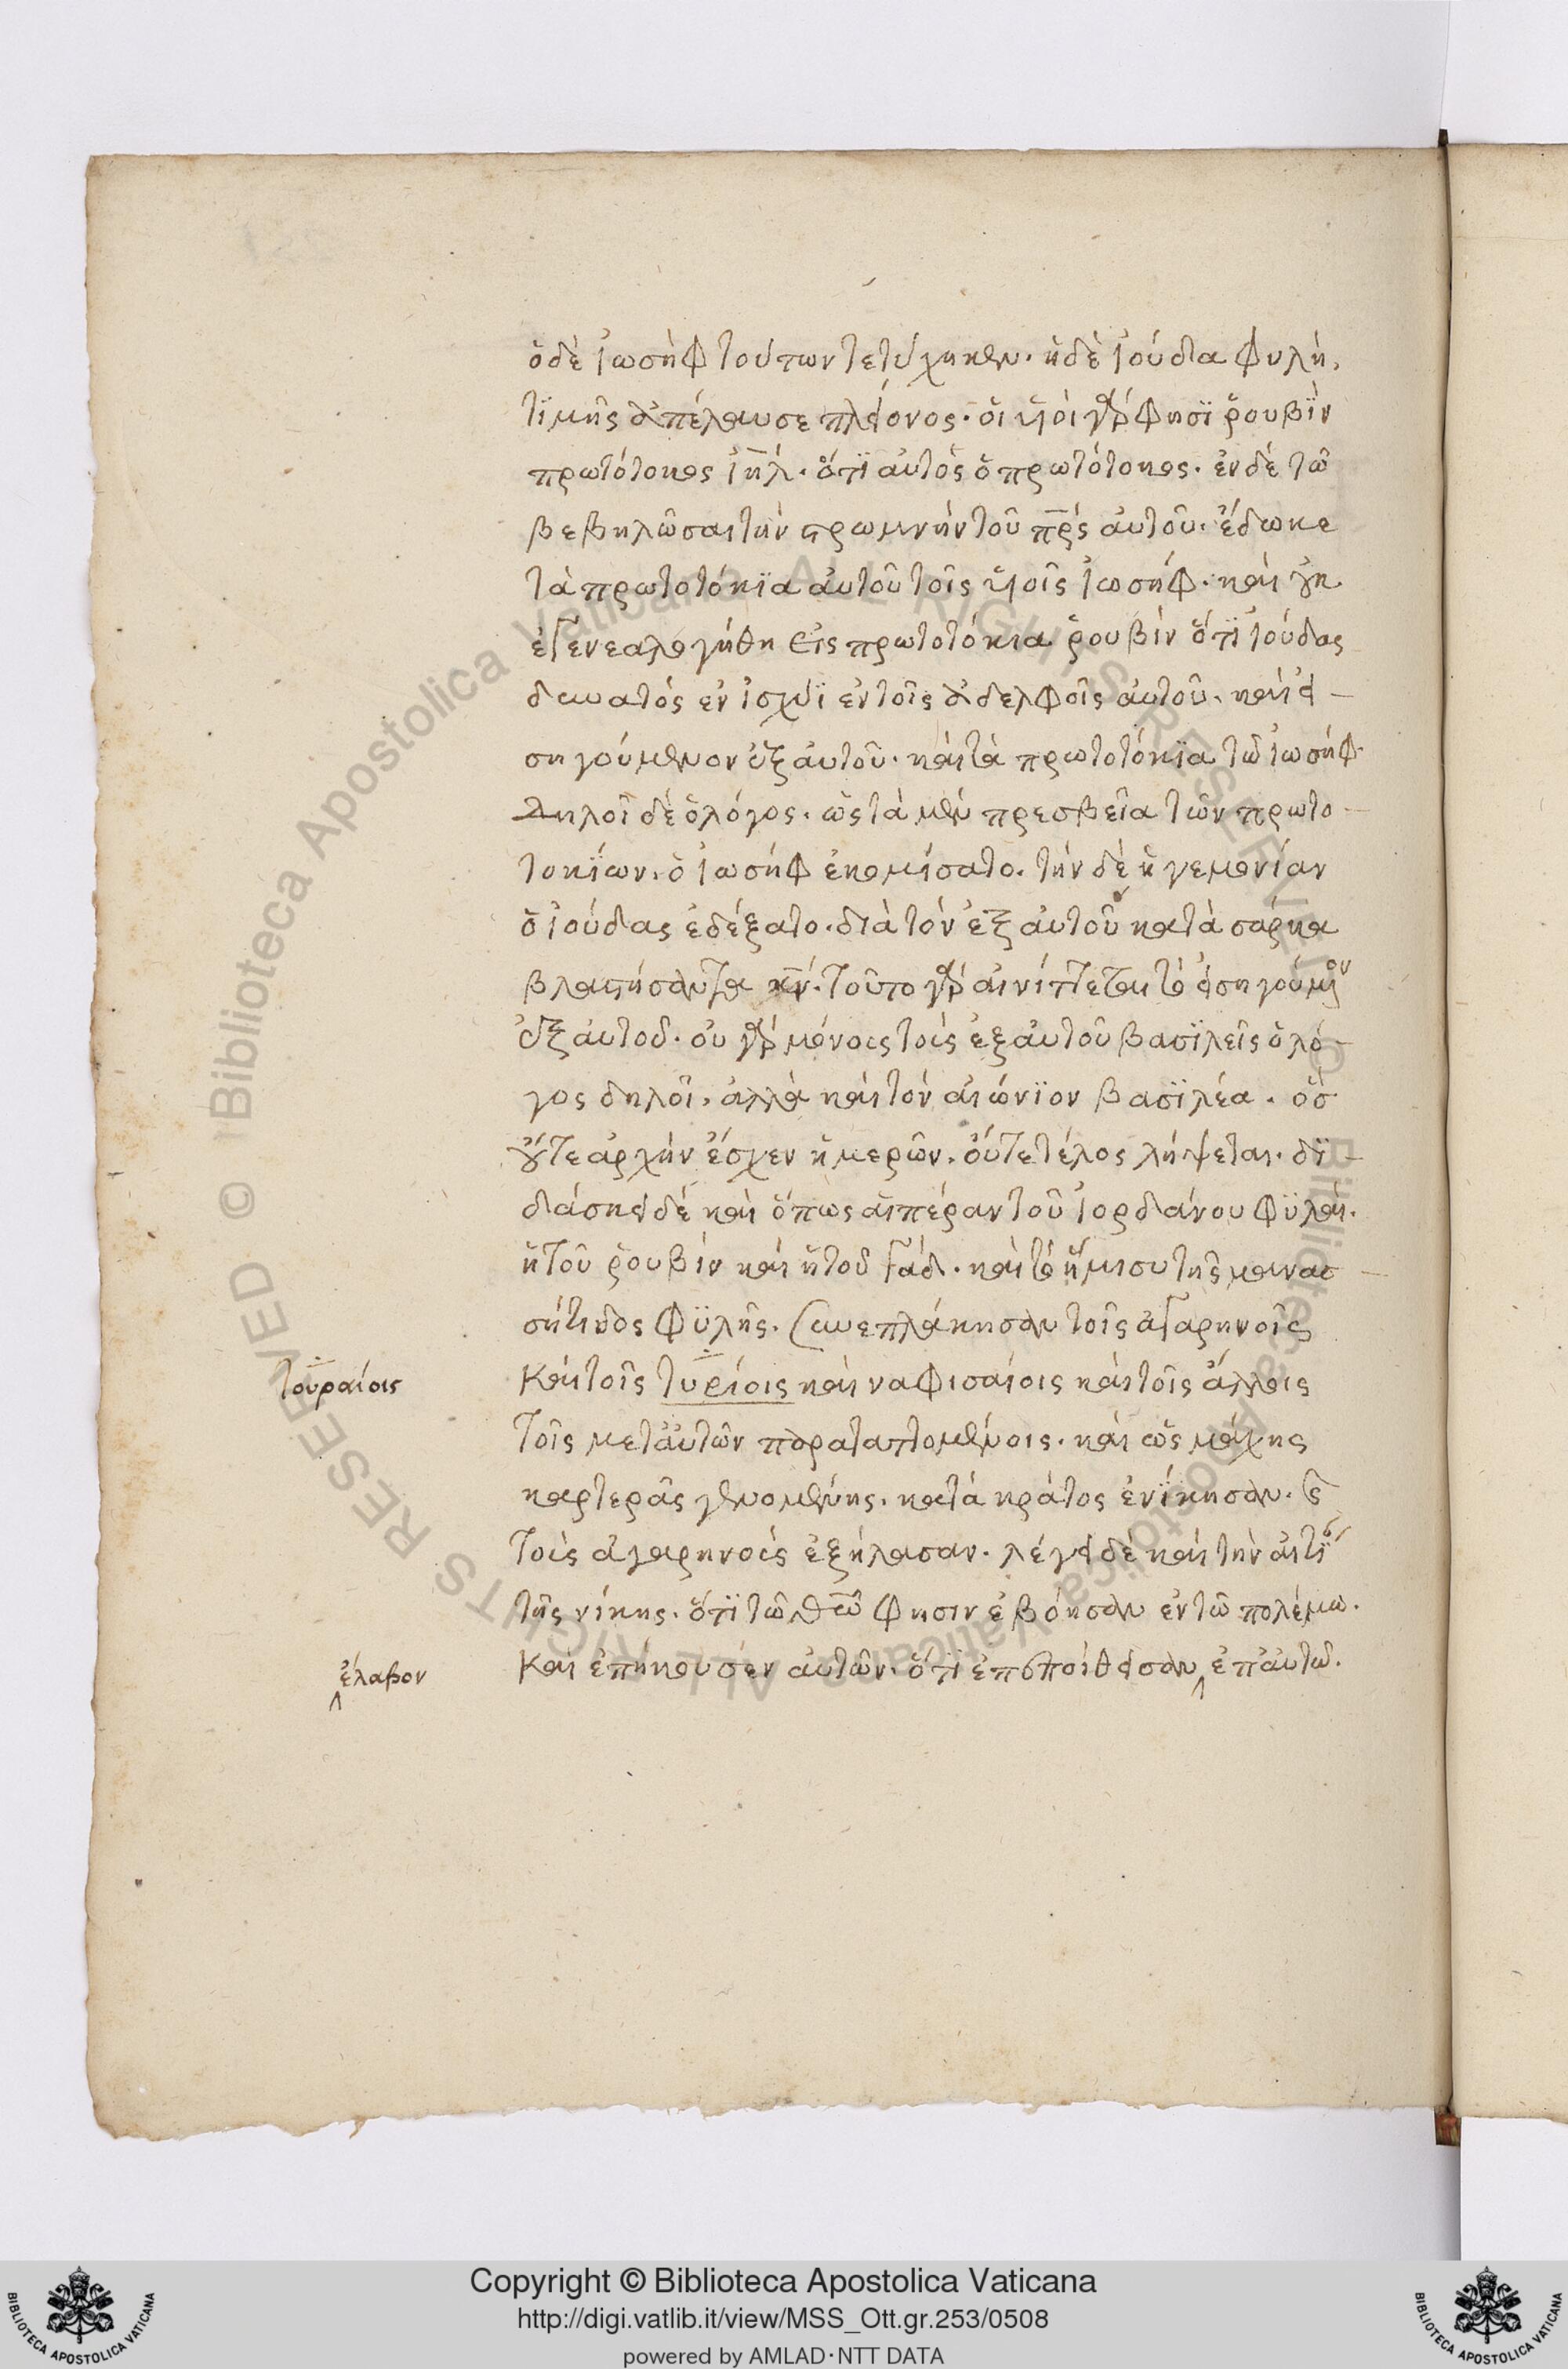 ὁ δὲ ἰωσὴφ τούτων τετύχηκεν. ἡ δὲ ἰούδα φυλὴ,
τϊμῆς ἀπέλαυσε πλείονος. οἱ ὑϊοὶ γὰρ φησὶ ῥουβὶν
πρωτότοκος ἰηλ. ὅτι αὐτὸς ὁ πρωτότοκος. ἐν δὲ τῶ
βεβηλῶσαι τὴν στρωμνὴν τοῦ πρς αὐτοῦ. ἔδωκε
τὰ πρωτοτόκϊα αὐτοῦ τοῖς ὑϊοῖς ἰωσήφ. καὶ οὐκ
ἐγενεαλογήθη εἰς πρωτοτόκια ῥουβὶν ὅτι ἰούδας
δυνατὸς ἐν ἰσχύϊ ἐν τοῖς ἀδελφοῖς αὐτοῦ. καὶ εἰ-
σηγούμενον ἐξ αὐτοῦ. καὶ τὰ πρωτοτόκϊα τῶ ἰωσήφ.
Δηλοῖ δὲ ὁ λόγος. ὡς τὰ μὲν πρεσβεῖα τῶν πρωτο-
τοκίων. ὁ ἰωσὴφ ἐκομίσατο. τὴν δὲ ἡγεμονίαν
ὁ ἰούδας ἐδέξατο. διὰ τὸν ἐξ αὐτοῦ κατὰ σάρκα
βλαστήσαντα κν. τοῦτο γὰρ αἰνίττεται τὸ εἰσηγούμενον
ἐξ αὐτοῦ. οὐ γὰρ μόνους τοὺς ἐξ αὐτοῦ βασϊλεῖς ὁ λό-
γος δηλοῖ. ἀλλὰ καὶ τὸν αἰώνϊον βασϊλέα. ὃς
οὔτε ἀρχὴν ἔσχεν ἡμερῶν. οὔτε τέλος λήψεται. δϊ-
δάσκει δὲ καὶ ὅπως αἱ πέραν τοῦ ἰορδάνου φϋλαὶ.
ἡ τοῦ ῥουβὶν καὶ ἡ τοῦ γάδ. καὶ τὸ ἥμισυ τῆς μανασ-
σήτιδος φϋλῆς. συνεπλάκησαν τοῖς ἀγαρηνοῖς
Καὶ τοῖς τυρίοις καὶ ναφισαίοις καὶ τοῖς ἄλλοις
τοῖς μετ' αὐτῶν παραταττομένοις. καὶ ὡς μάχης
καρτερᾶς γενομένης. κατὰ κράτος ἐνίκησαν. καὶ
τοὺς ἀγαρηνοὺς ἐξήλασαν. λέγει δὲ καὶ τὴν αἰτίαν
τῆς νίκης. ὅτι τῶ θεῶ φησιν ἐβόησαν ἐν τῶ πολέμω.
Καὶ ἐπήκουσεν αὐτῶν. ὅτι ἐπεποίθεισαν ἐπ' αὐτῶ.
τουραίοις
ἔλαβον
Copyright © Biblioteca Apostolica Vaticana
http://digi.vatlib.it/view/MSS_Ott.gr.253/0508
powered by AMLAD·NTT DATA